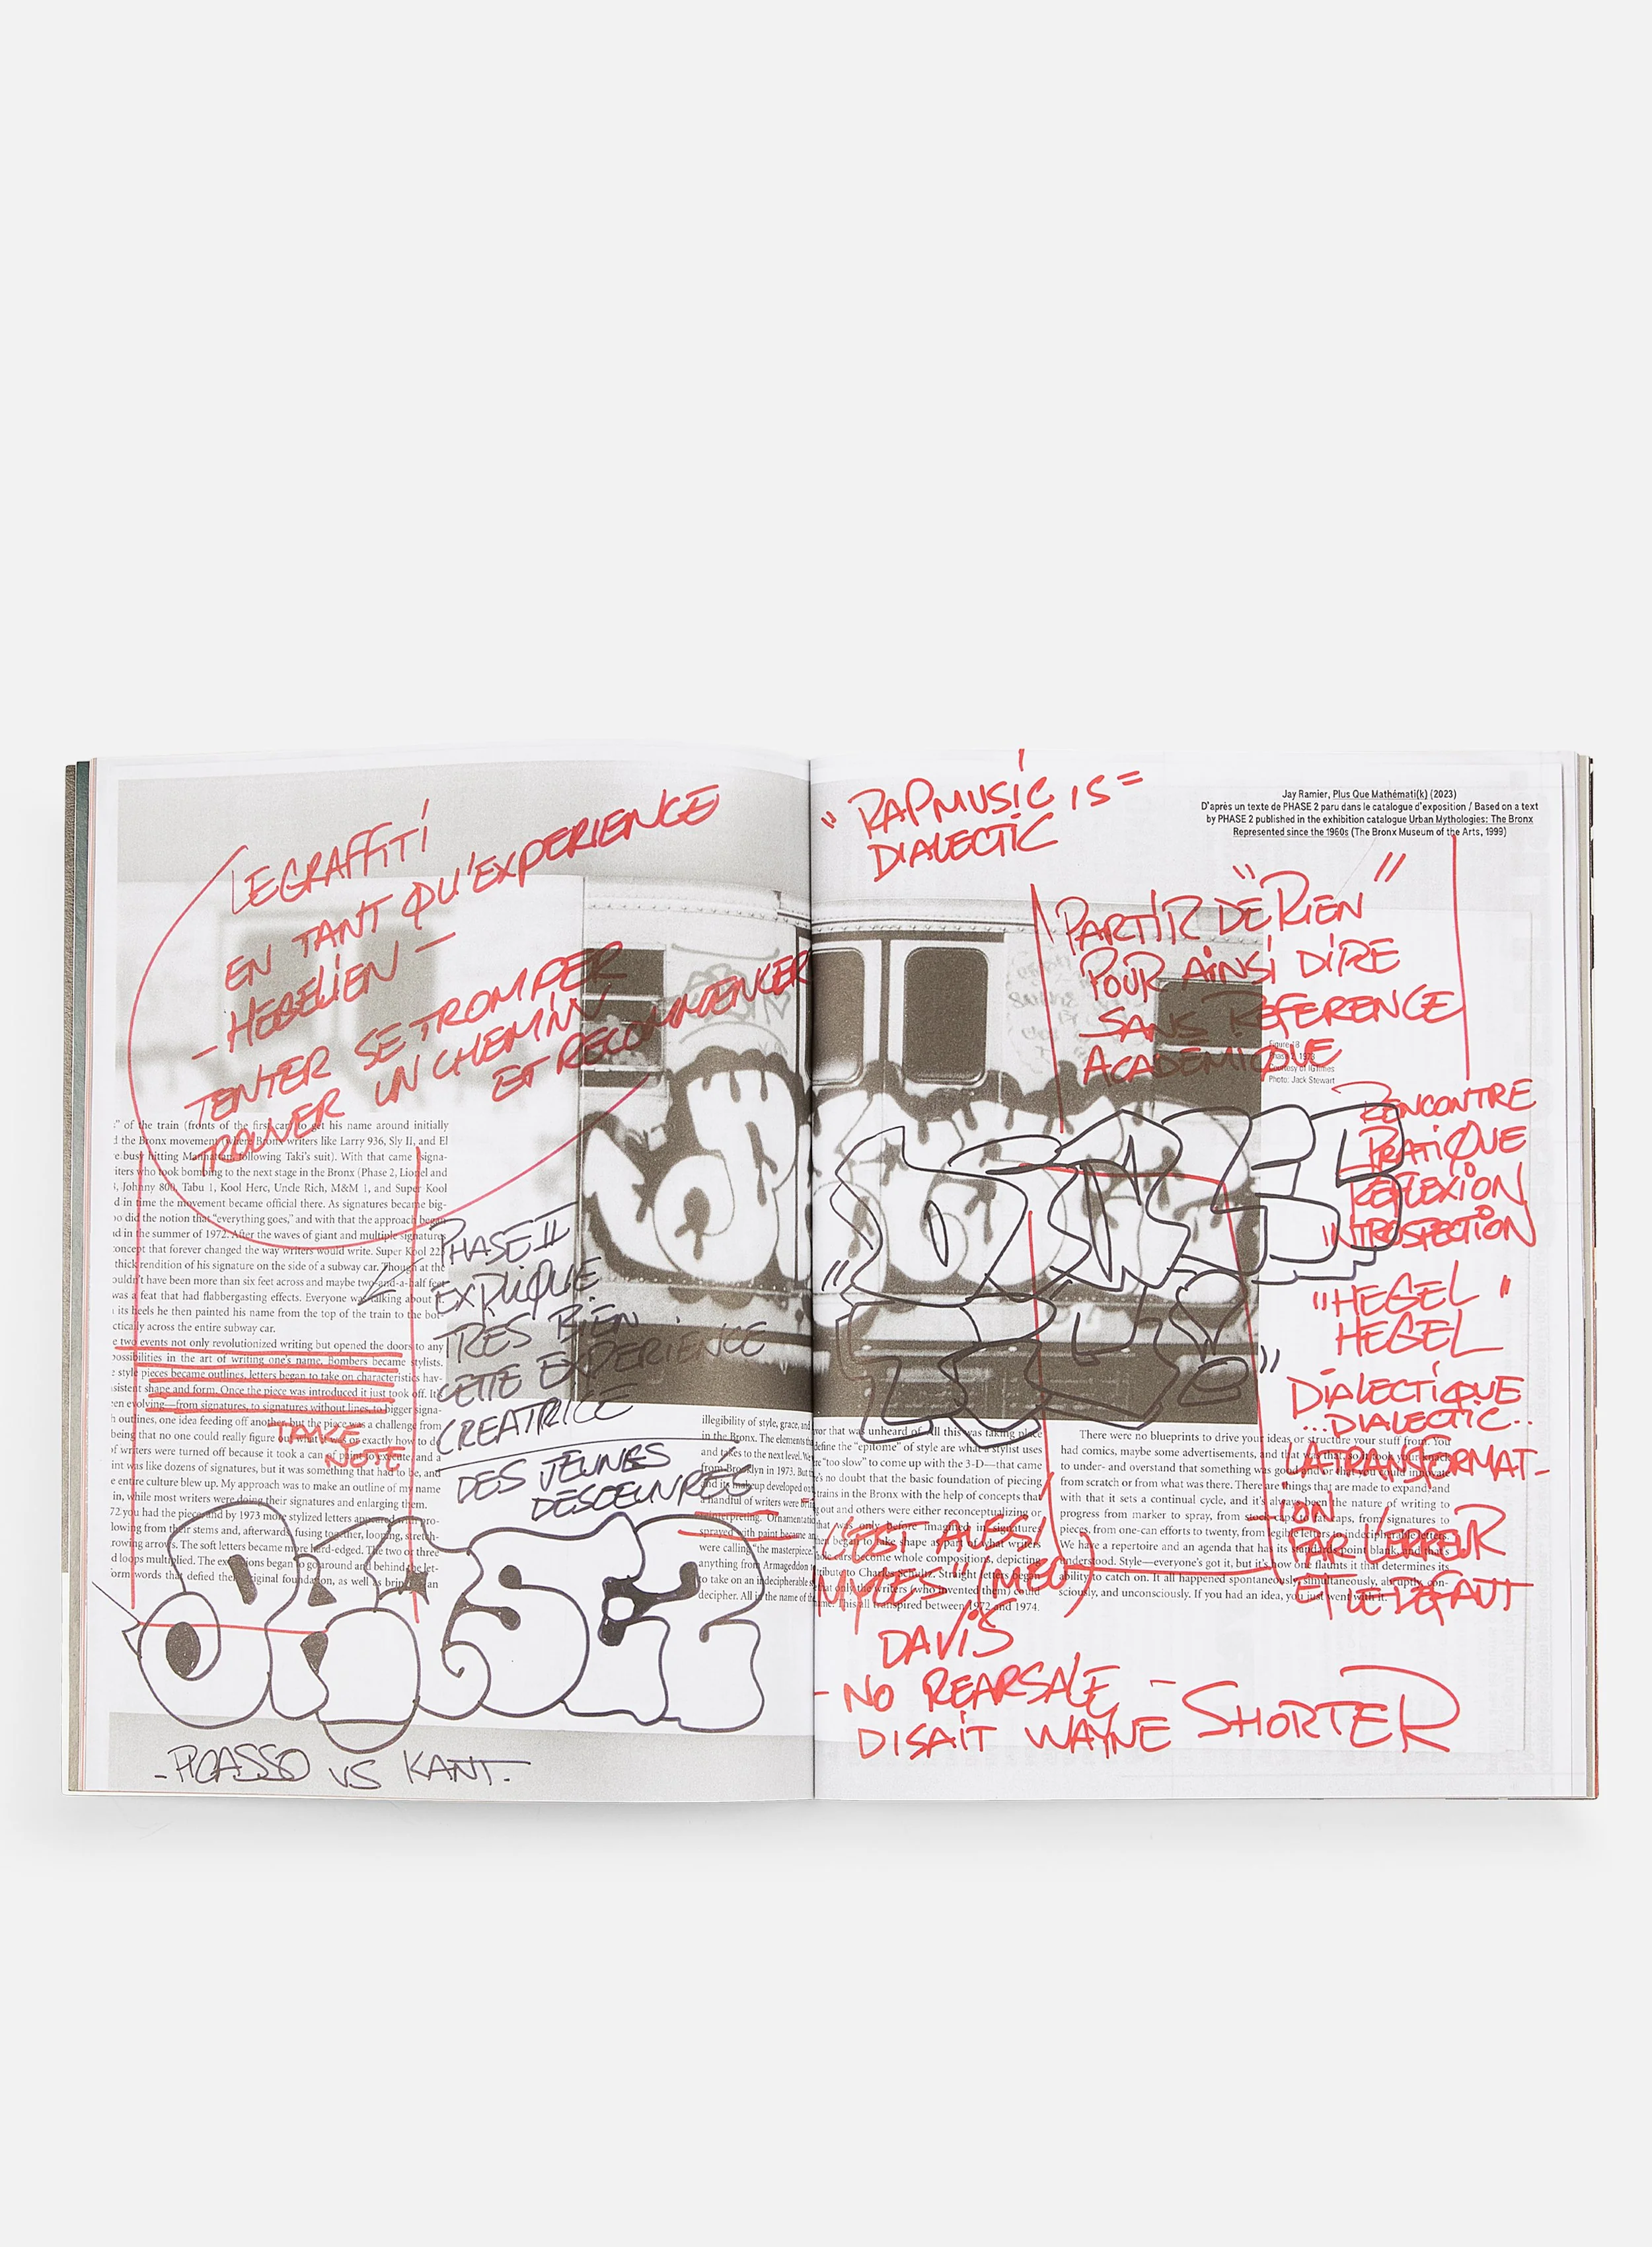 LE GRAFFITI
EN TANT QU'EXPERIENCE
- HEGELIEN -
TENTER SE TROMPER
TROUVER UN CHEMIN
ET RECOMMENCER
" of the train (fronts of the first car) to get his name around initially
the Bronx movement (where Bronx writers like Larry 936, Sly II, and El
busy hitting Manhattan, following Taki's suit). With that came signa-
who took bombing to the next stage in the Bronx (Phase 2, Lionel and
Johnny 800, Tabu 1, Kool Herc, Uncle Rich, M&M 1, and Super Kool
in time the movement became official there. As signatures became big-
did the notion that "everything goes," and with that the approach began
in the summer of 1972. After the waves of giant and multiple signatures
concept that forever changed the way writers would write. Super Kool 223
thick rendition of his signature on the side of a subway car. Though at the
have been more than six feet across and maybe two-and-a-half feet
was a feat that had flabbergasting effects. Everyone was talking about it.
its heels he then painted his name from the top of the train to the bot-
across the entire subway car.
two events not only revolutionized writing but opened the doors to any
possibilities in the art of writing one's name. Bombers became stylists.
style pieces became outlines, letters began to take on characteristics hav-
shape and form. Once the piece was introduced it just took off. It's
evolving—from signatures, to signatures without lines, to bigger signa-
outlines, one idea feeding off another but the piece was a challenge from
being that no one could really figure out what it was or exactly how to do
of writers were turned off because it took a can of paint to execute, and a
was like dozens of signatures, but it was something that had to be, and
entire culture blew up. My approach was to make an outline of my name
in, while most writers were doing their signatures and enlarging them.
72 you had the piece and by 1973 more stylized letters appeared with pro-
from their stems and, afterwards, fusing together, looping, stretch-
arrows. The soft letters became more hard-edged. The two or three
loops multiplied. The extensions began to go around and behind the let-
words that defied their original foundation, as well as bringing an
TAKE
NOTE
PHASE II
EXPLIQUE
TRES BIEN
CETTE EXPERIENCE
CREATRICE
DES JEUNES
DESOEUVRÉS
illegibility of style, grace, and
in the Bronx. The elements
and takes to the next level. We
from Brooklyn in 1973. But
and its makeup developed
a handful of writers were
reinterpreting. Ornamentation
sprayed with paint became
were calling "the masterpiece,
anything from Armageddon
to take on an indecipherable
decipher. All in the name of
PHASE2
- PICASSO VS KANT -
"RAP MUSIC IS =
DIALECTIC
Jay Ramier, Plus Que Mathémati(k) (2023)
D'après un texte de PHASE 2 paru dans le catalogue d'exposition / Based on a text
by PHASE 2 published in the exhibition catalogue Urban Mythologies: The Bronx
Represented since the 1960s (The Bronx Museum of the Arts, 1999)
PARTIR DE "RIEN"
POUR AINSI DIRE
SANS REFERENCE
ACADEMIQUE
Figure 18
Phase 2, 1973
Courtesy of IGTimes
Photo: Jack Stewart
RENCONTRE
PRATIQUE
REFLEXION
INTROSPECTION
"HEGEL"
HEGEL
DIALECTIQUE
...DIALECTIC...
LA TRANSFORMAT-
ION
PAR L'ERREUR
ET LE DEFAUT
that was unheard of. All this was taking place
define the "epitome" of style are what a stylist uses
"too slow" to come up with the 3-D—that came
no doubt that the basic foundation of piecing
trains in the Bronx with the help of concepts that
out and others were either reconceptualizing or
that was only before imagined in signatures
began to take shape as part of what writers
cars become whole compositions, depicting
Charles Schultz. Straight letters began
that only the writers (who invented them) could
This all transpired between 1972 and 1974.
There were no blueprints to drive your ideas or structure your stuff from. You
had comics, maybe some advertisements, and that was that, so it took your knack
to under- and overstand that something was good and/or that you could innovate
from scratch or from what was there. There are things that are made to expand, and
with that it sets a continual cycle, and it's always been the nature of writing to
progress from marker to spray, from stock caps to fat caps, from signatures to
pieces, from one-can efforts to twenty, from legible letters to indecipherable letters.
We have a repertoire and an agenda that has its standards point blank, and that's
understood. Style—everyone's got it, but it's how one flaunts it that determines its
ability to catch on. It all happened spontaneously, simultaneously, abruptly, con-
sciously, and unconsciously. If you had an idea, you just went with it.
C'EST AUSSI
DAVIS
- NO REARSALE -
DISAIT WAYNE SHORTER